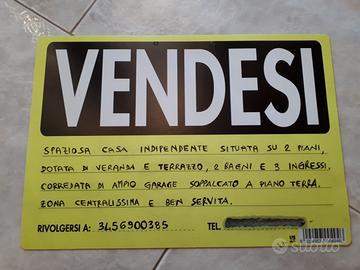 VENDESI
SPAZIOSA CASA INDIPENDENTE SITUATA SU 2 PIANI,
DOTATA DI VERANDA E TERRAZZO, 2 BAGNI E 3 INGRESSI.
CORREDATA DI AMPIO GARAGE SOPPALCATO A PIANO TERRA.
ZONA CENTRALISSIMA E BEN SERVITA.
RIVOLGERSI A: 3456900385 TEL.
subito